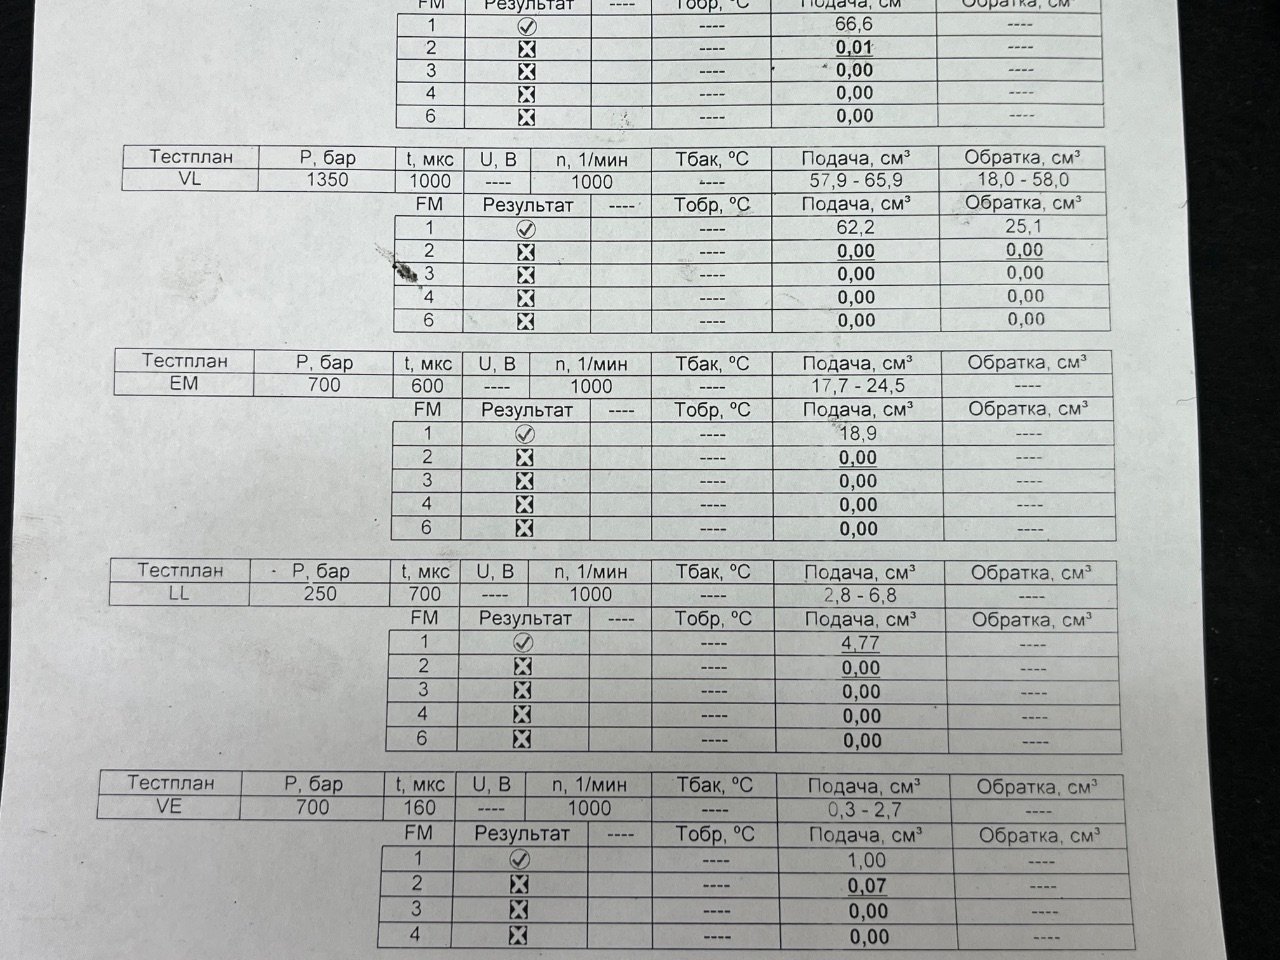 FM Результат ---- Тобр, ºС Подача, см³ Обратка, см³
1 ---- 66,6 ----
2 ---- 0,01 ----
3 ---- 0,00 ----
4 ---- 0,00 ----
6 ---- 0,00 ----
Тестплан Р, бар t, мкс U, В n, 1/мин Тбак, ºС Подача, см³ Обратка, см³
VL 1350 1000 ---- 1000 ---- 57,9 - 65,9 18,0 - 58,0
FM Результат ---- Тобр, ºС Подача, см³ Обратка, см³
1 ---- 62,2 25,1
2 ---- 0,00 0,00
3 ---- 0,00 0,00
4 ---- 0,00 0,00
6 ---- 0,00 0,00
Тестплан Р, бар t, мкс U, В n, 1/мин Тбак, ºС Подача, см³ Обратка, см³
EM 700 600 ---- 1000 ---- 17,7 - 24,5 ----
FM Результат ---- Тобр, ºС Подача, см³ Обратка, см³
1 ---- 18,9 ----
2 ---- 0,00 ----
3 ---- 0,00 ----
4 ---- 0,00 ----
6 ---- 0,00 ----
Тестплан Р, бар t, мкс U, В n, 1/мин Тбак, ºС Подача, см³ Обратка, см³
LL 250 700 ---- 1000 ---- 2,8 - 6,8 ----
FM Результат ---- Тобр, ºС Подача, см³ Обратка, см³
1 ---- 4,77 ----
2 ---- 0,00 ----
3 ---- 0,00 ----
4 ---- 0,00 ----
6 ---- 0,00 ----
Тестплан Р, бар t, мкс U, В n, 1/мин Тбак, ºС Подача, см³ Обратка, см³
VE 700 160 ---- 1000 ---- 0,3 - 2,7 ----
FM Результат ---- Тобр, ºС Подача, см³ Обратка, см³
1 ---- 1,00 ----
2 ---- 0,07 ----
3 ---- 0,00 ----
4 ---- 0,00 ----